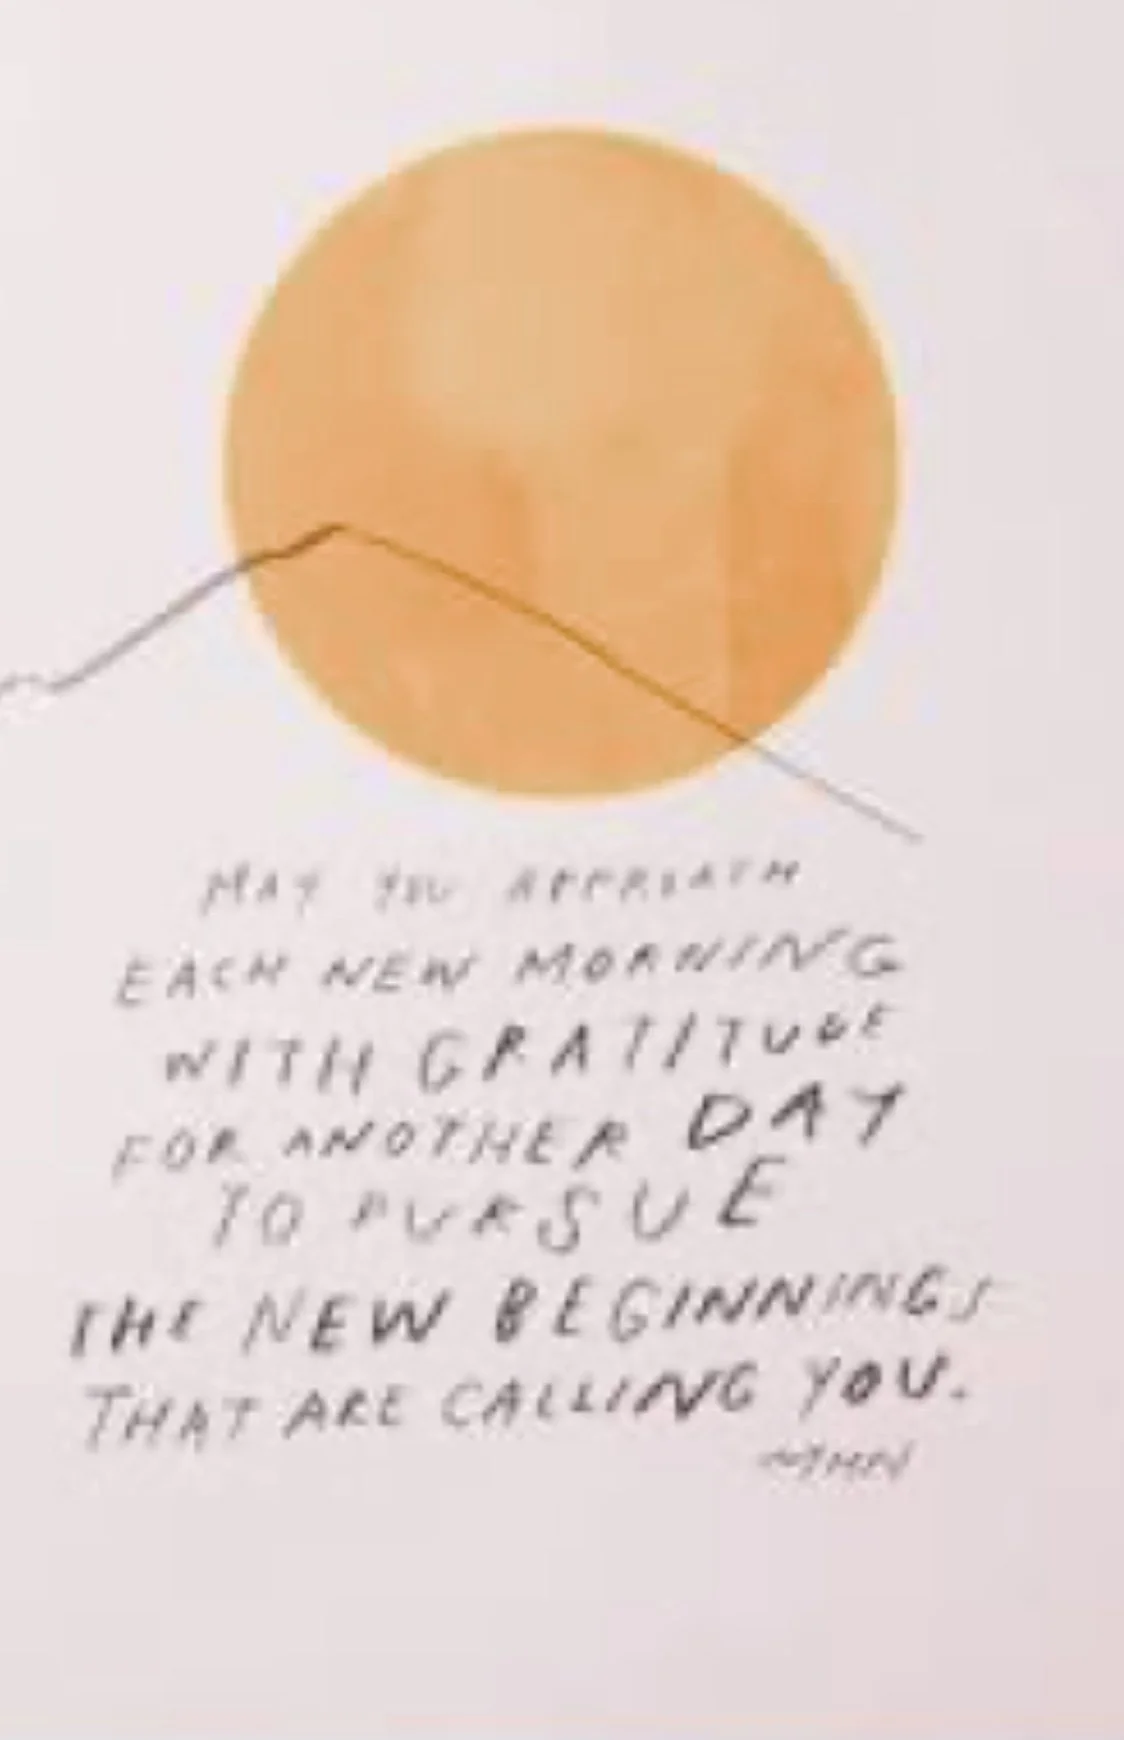 MAY YOU APPROACH
EACH NEW MORNING
WITH GRATITUDE
FOR ANOTHER DAY
TO PURSUE
THE NEW BEGINNINGS
THAT ARE CALLING YOU.
~MHN